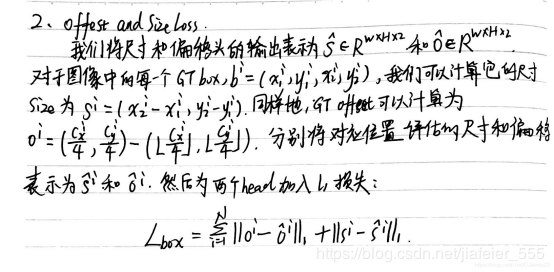 2、offest and Size Loss.
我们将尺寸和偏移头的输出表示为 ŝ∈R^{W×H×2} 和 ô∈R^{W×H×2}.
对于图像中的每个GT box, b^i=(x_1^i, y_1^i, x_2^i, y_2^i), 我们可以计算它的尺寸
size 为 s^i=(x_2^i-x_1^i, y_2^i-y_1^i). 同样地, GT offset 可以计算为
o^i=(c_x^i/4, c_y^i/4)-(⌊c_x^i/4⌋, ⌊c_y^i/4⌋). 分别将对应位置评估的尺寸和偏移
表示为 ŝ^i 和 ô^i. 然后为两个head加入 l_1 损失:
L_box = Σ_{i=1}^N ||o^i-ô^i||_1 + ||s^i-ŝ^i||_1.
https://blog.csdn.net/jiafeier_555